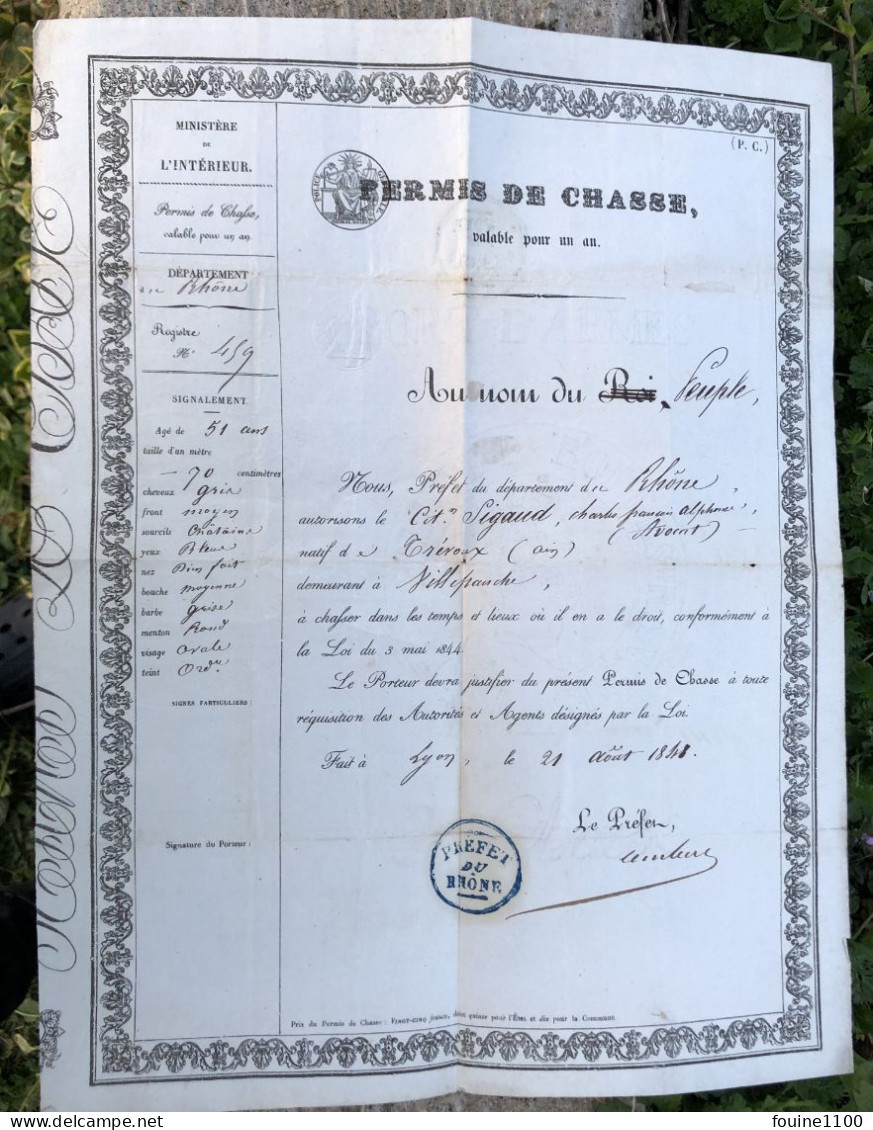 MINISTÈRE
DE
L'INTÉRIEUR.
Permis de Chasse,
valable pour un an.
DÉPARTEMENT
de Rhône
Registre
N° 459
SIGNALEMENT
Agé de 51 ans
taille d'un mètre
70 centimètres
cheveux gris
front moyen
sourcils Châtains
yeux Bleus
nez Bien fait
bouche moyenne
barbe grise
menton Rond
visage ovale
teint Ordre
SIGNES PARTICULIERS :
Signature du Porteur :
(P. C.)
POLICE GÉNÉRALE
PERMIS DE CHASSE,
valable pour un an.
Au nom du Roi, Peuple,
Nous, Préfet du département de Rhône,
autorisons le Cit.n Sigaud, charles françois alphonse,
(Avocat)
natif de Trévoux (ain)
demeurant à Villefranche,
à chasser dans les temps et lieux où il en a le droit, conformément à
la Loi du 3 mai 1844.
Le Porteur devra justifier du présent Permis de Chasse à toute
réquisition des Autorités et Agents désignés par la Loi.
Fait à Lyon, le 21 août 1848
Le Préfet,
PRÉFET
DU
RHÔNE
Prix du Permis de Chasse : VINGT-CINQ francs, dont quinze pour l'État et dix pour la Commune.
fouine1100